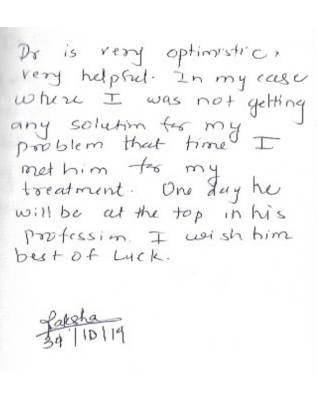 Dr is very optimistic,
very helpful. In my case
where I was not getting
any solution for my
problem that time I
met him for my
treatment. One day he
will be at the top in his
Profession. I wish him
best of Luck.
30/10/19